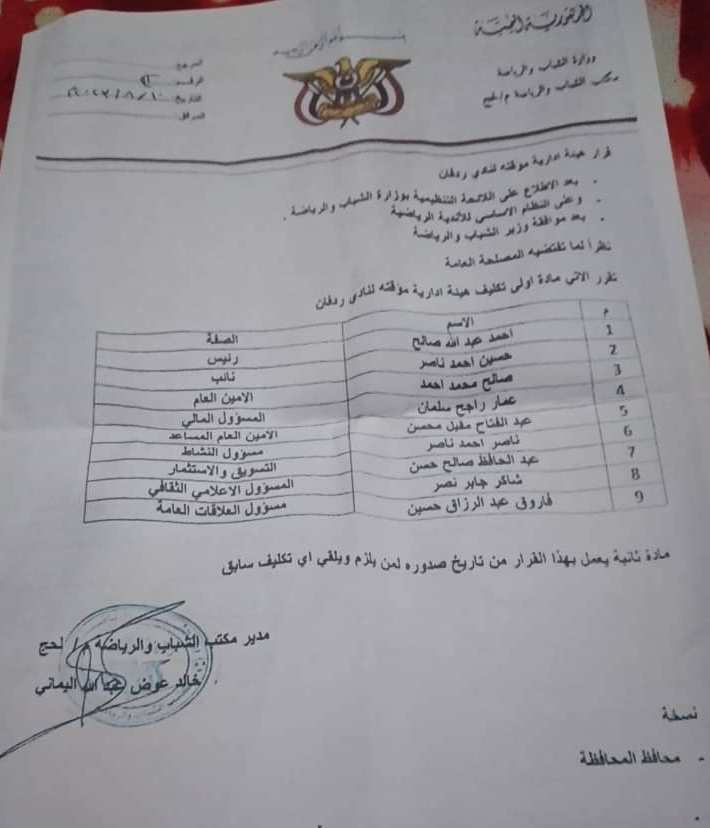 الجمهورية اليمنية
وزارة الشباب والرياضة
مكتب الشباب والرياضة م/لحج
المرجع
الرقم
التاريخ
المرافق
قرار هيئة ادارية موقته لنادي ردفان
- بعد الاطلاع على اللائحة التنظيمية بوزارة الشباب والرياضة .
- وعلى النظام الاساسي للأندية الرياضية
- بعد موافقة وزير الشباب والرياضة
نظراً لما تقتضيه المصلحة العامة
تقرر الاتي مادة اولى تكليف هيئة ادارية مؤقته لنادي ردفان
م الاسم الصفة
1 احمد عبد الله صالح رئيس
2 حسين احمد ناصر نائب
3 صالح محمد احمد الامين العام
4 عمار راجح سلمان المسؤول المالي
5 عبد الفتاح مقبل محسن الامين العام المساعد
6 ناصر احمد ناصر مسؤول النشاط
7 عبد الحافظ صالح حسن التسويق والاستثمار
8 شاكر جابر نصر المسؤول الاعلامي الثقافي
9 فاروق عبد الرزاق حسين مسؤول العلاقات العامة
مادة ثانية يعمل بهذا القرار من تاريخ صدوره لمن يلزم ويلغي اي تكليف سابق
مدير مكتب الشباب والرياضة م/ لحج
خالد عوض عبد الله اليماني
نسخة
- محافظ المحافظة